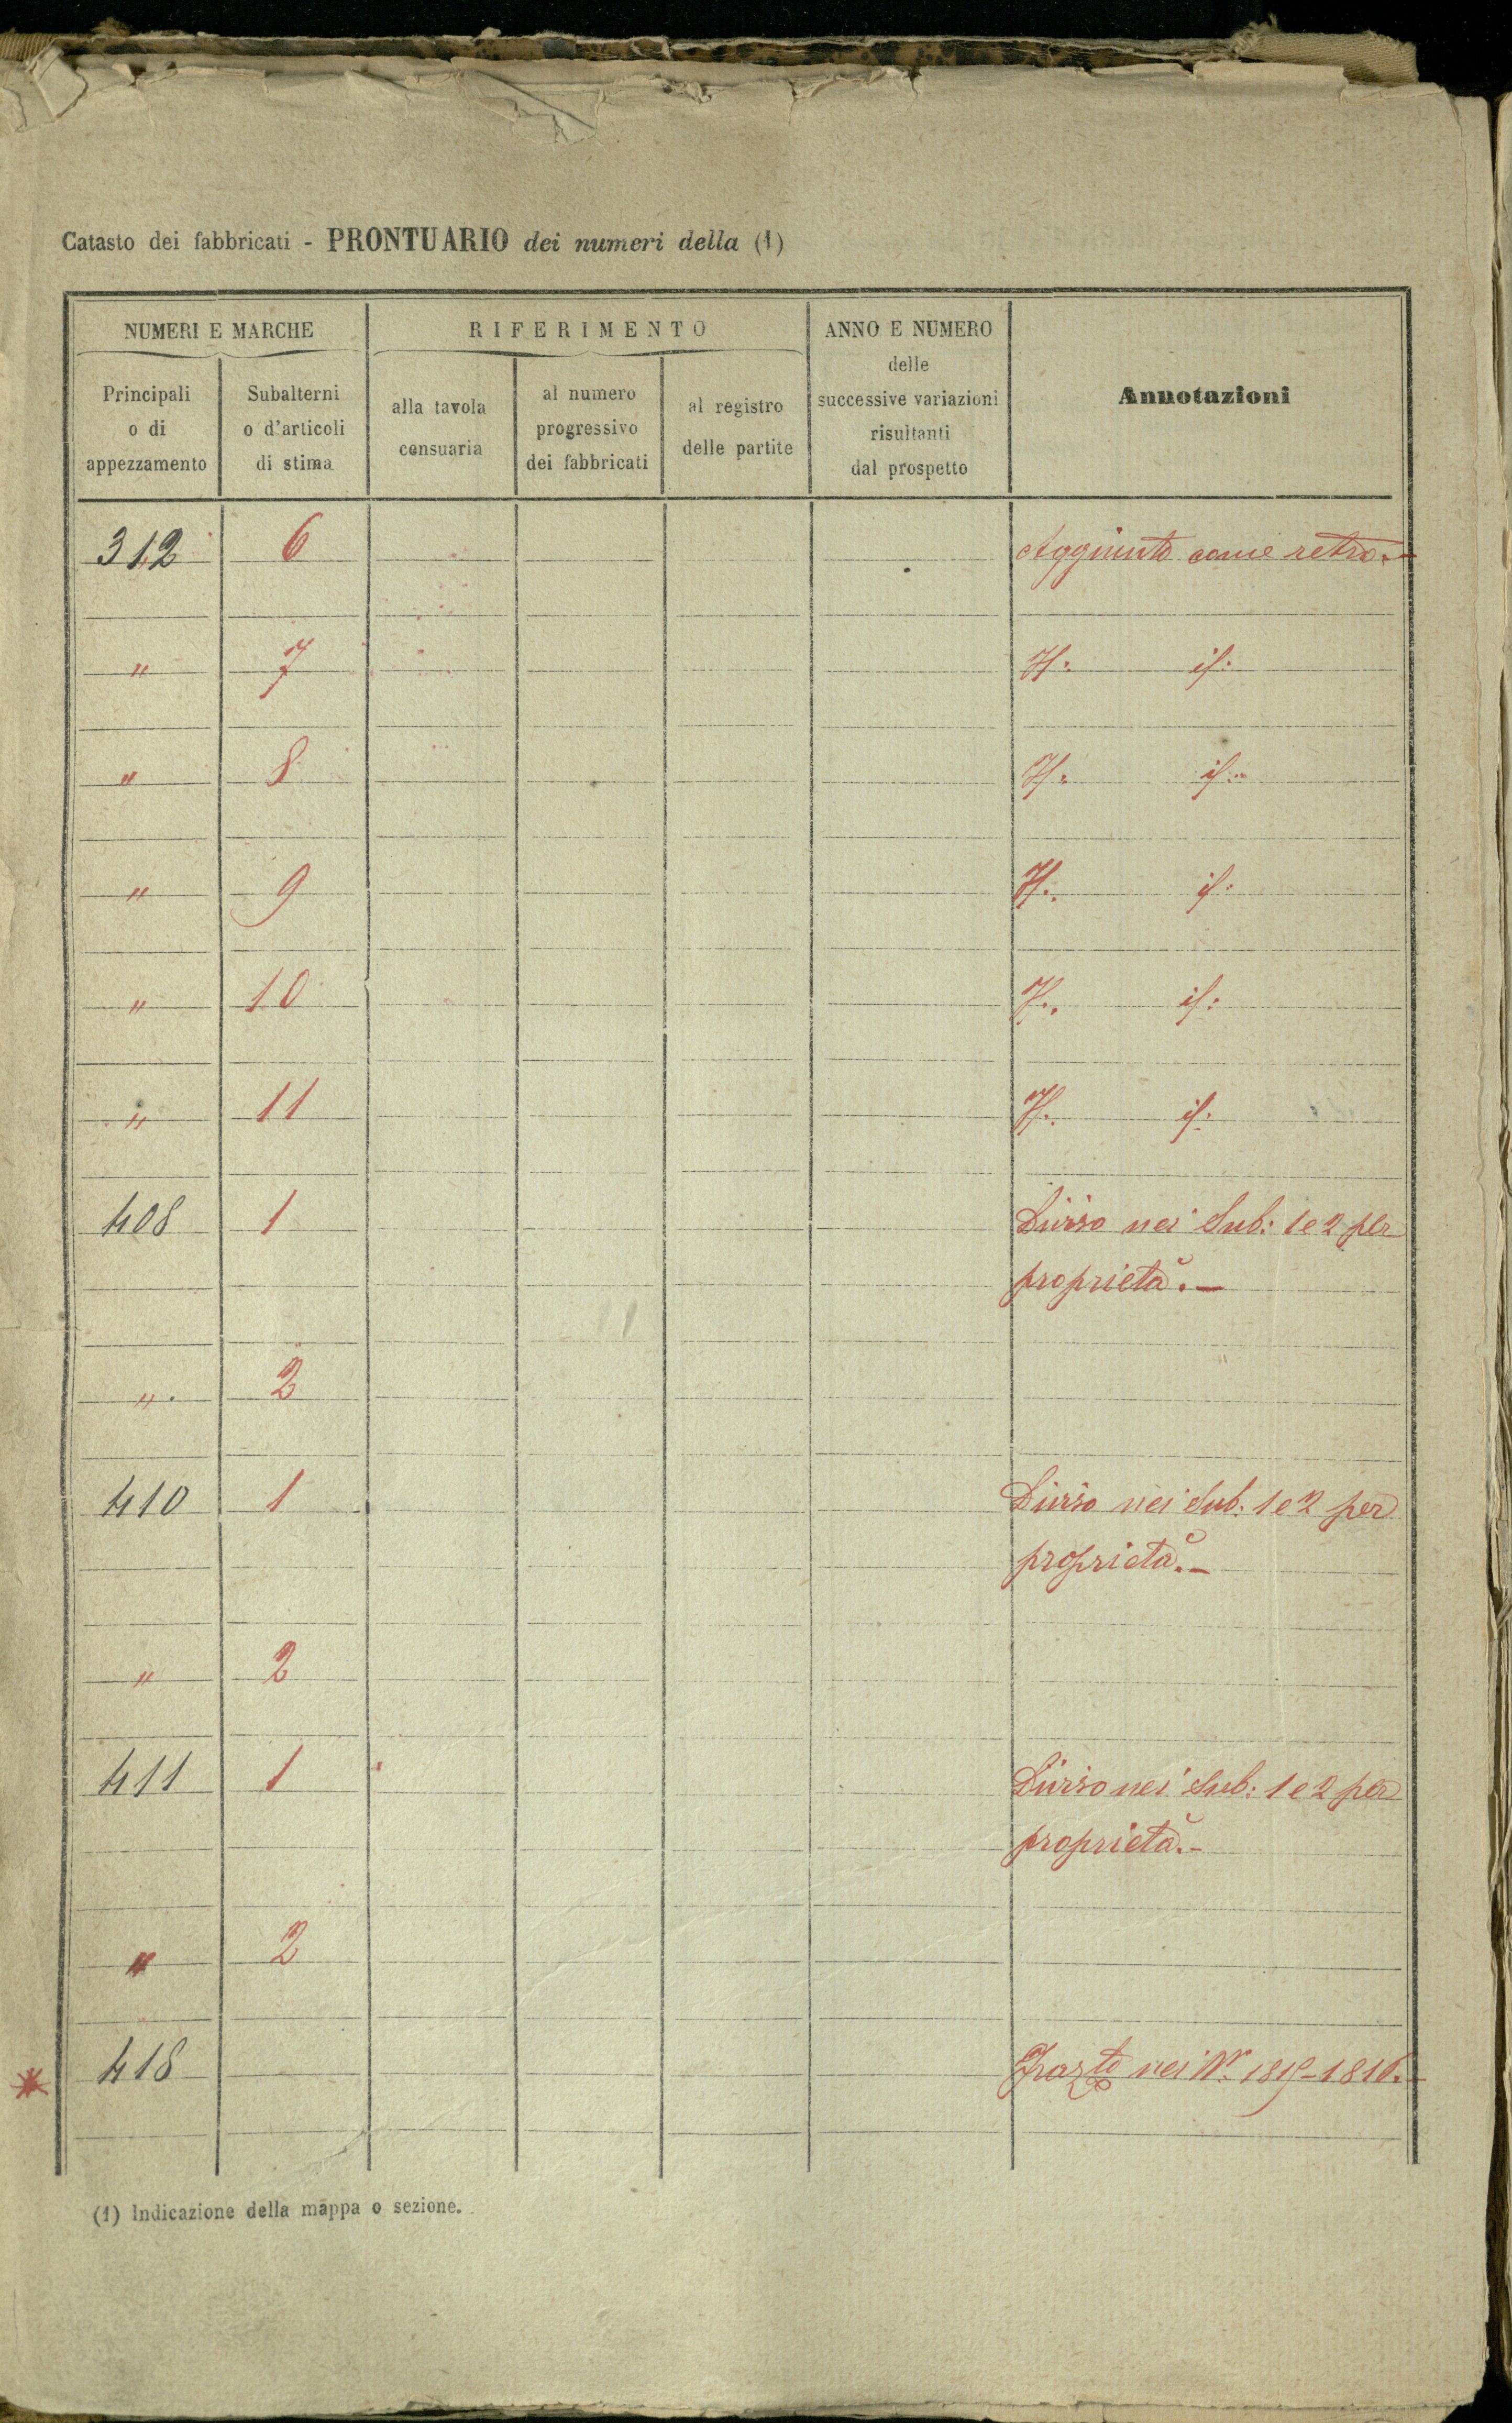 Catasto dei fabbricati - PRONTUARIO dei numeri della (1)
NUMERI E MARCHE
RIFERIMENTO
ANNO E NUMERO
delle
successive variazioni
risultanti
dal prospetto
Annotazioni
Principali
o di
appezzamento
Subalterni
o d'articoli
di stima
alla tavola
censuaria
al numero
progressivo
dei fabbricati
al registro
delle partite
312 6 Aggiunto come retro.-
" 7 If. if:
" 8 If. if:
" 9 If. if:
" 10 If. if:
" 11 If. if:
408 1 Diviso nei Sub: 1 e 2 per
proprietà.-
" 2
410 1 Diviso nei Sub: 1 e 2 per
proprietà.-
" 2
411 1 Diviso nei Sub: 1 e 2 per
proprietà.-
" 2
418 nei Nr. 1816.-
(1) Indicazione della mappa o sezione.